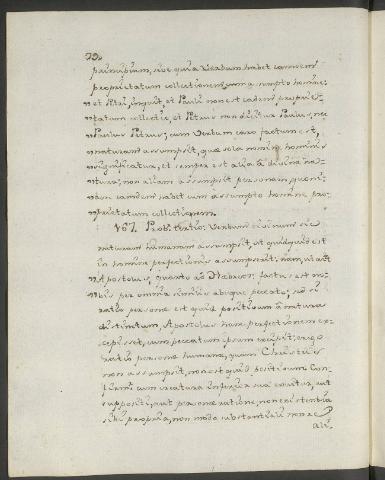 79.
principium, sive quia Verbum habet eamdem
proprietatum collectionem cum assumpto homine:
et Petri, inquit, et Pauli non est eadem propriet-
tatum collectio, et Petrus non dicitur Paulus, nec
Paulus Petrus; cum Verbum caro factum est,
naturam assumpsit, quæ solo nomine hominis
significatur, et semper est alia a divina na-
tura; non aliam assumpsit personam, quoni-
am eamdem habet cum assumpto homine pro-
prietatum collectionem.
167. Prob. tertio: Verbum divinum sic
naturam humanam assumpsit, ut quidquid est
in homine perfectionis assumpserit: nam, ut ait
Apostolus, quanto ad Hebræos: factus est no-
bis per omnia similis absque peccato; sed si
ratio personæ est quid positivum a natura
distinctum, Apostolus hanc perfectionem ex-
cepisset, cum peccatum ipsum excepit; ergo
ratio personæ humanæ, quam Christus
non assumpsit, non est quid positivum. Con-
firm. cum creatura inferior sua exuitur, aut
suppositi, aut personæ ratione, non existentia
sibi propria, non modo substantiali non e
ali